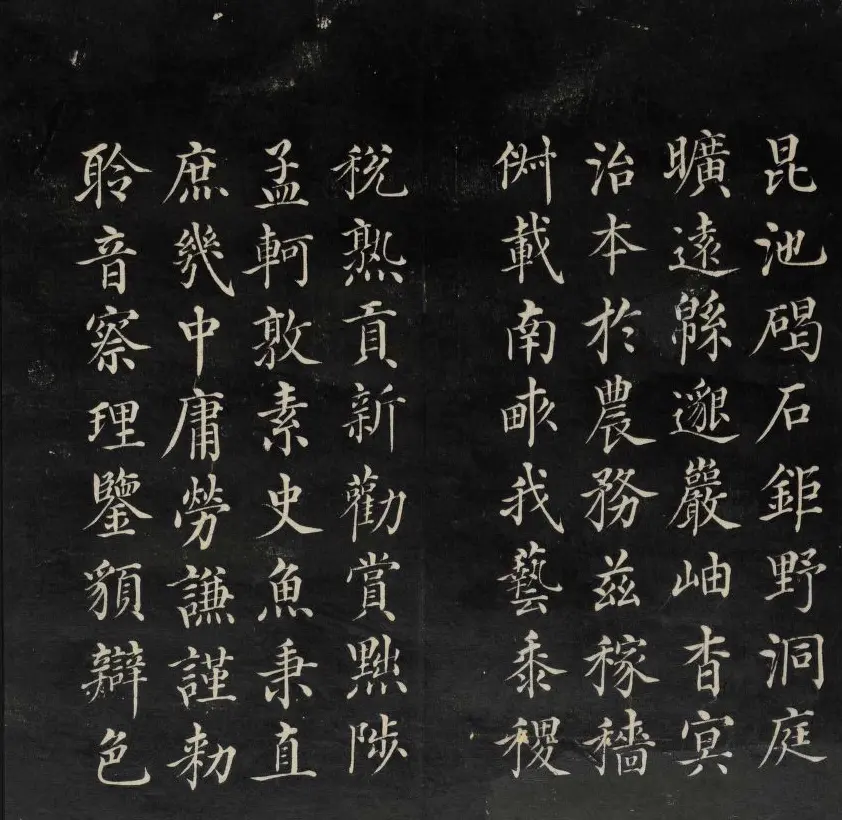 昆池碣石鉅野洞庭
曠遠緜邈巖岫杳冥
治本於農務茲稼穡
俶載南畝我藝黍稷
稅熟貢新勸賞黜陟
孟軻敦素史魚秉直
庶幾中庸勞謙謹勑
聆音察理鑒貌辯色